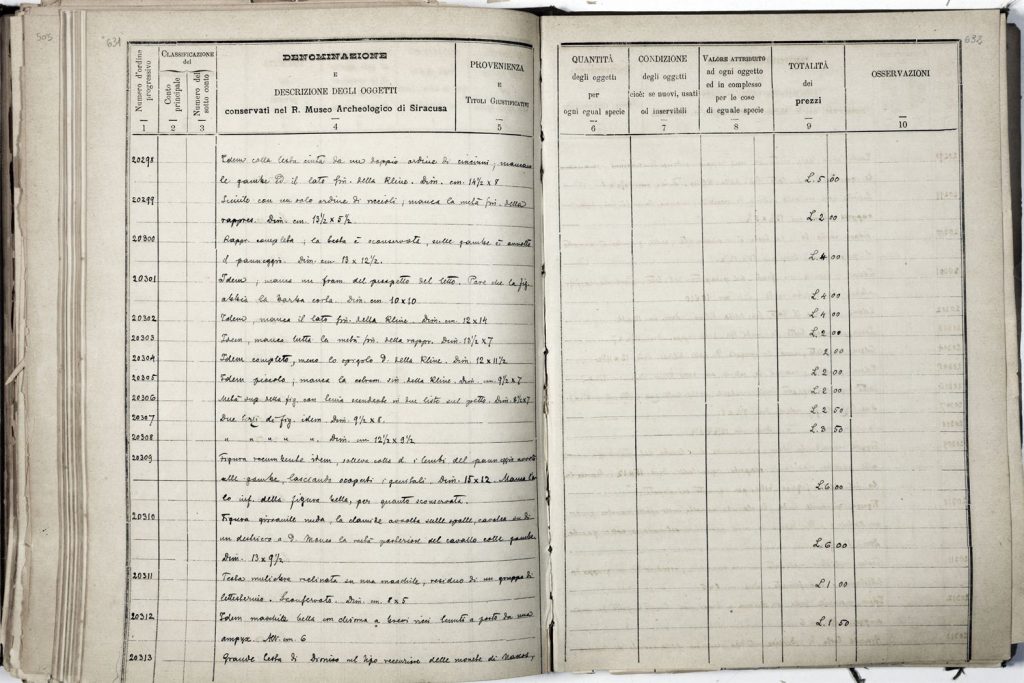 505
631
Numero d'ordine progressivo
CLASSIFICAZIONE del
Conto principale
Numero del sotto conto
DENOMINAZIONE
E
DESCRIZIONE DEGLI OGGETTI
conservati nel R. Museo Archeologico di Siracusa
PROVENIENZA
E
TITOLI GIUSTIFICATIVI
1 2 3 4 5
20298 Idem colla testa cinta da un doppio ordine di cincinni; mancan
le gambe ed il lato sin. della Kline. Dim. cm. 14½ x 8
20299 Simile con un solo ordine di riccioli; manca la metà sin. della
rappres. Dim. cm. 13½ x 5½
20300 Rappr. completa; la testa è sconservata, sulle gambe è avvolto
il panneggio. Dim. cm 13 x 12½.
20301 Idem; manca un fram. del prospetto del letto. Pare che la fig.
abbia la barba corta. Dim. cm. 10 x 10
20302 Idem, manca il lato sin. della Kline. Dim. cm. 12 x 14
20303 Idem, manca tutta la metà sin. della rappr. Dim. 13½ x 7
20304 Idem completo, meno lo spigolo d. della Kline. Dim. 12 x 11½
20305 Idem piccolo; manca la colonn. sin. della Kline. Dim. cm. 9½ x 7
20306 Metà sup. della fig. con tenia scendente in due liste sul petto. Dim. 8½ x 7
20307 Due terzi di fig. idem. Dim. 9½ x 8.
20308 " " " " ". Dim. cm 12½ x 9½
20309 Figura recumbente idem, solleva colla d. i lembi del panneggio avvolto
alle gambe, lasciando scoperti i genitali. Dim. 15 x 12. Manca la
to inf. della figura bella, per quanto sconservata.
20310 Figura giovanile nuda, la clamide avvolta sulle spalle, cavalca su di
un destriero a d. Manca la metà posteriore del cavallo colle gambe
Dim. 13 x 9½
20311 Testa muliebre reclinata su una maschile, residuo di un gruppo di
lettisternio. Sconservato. Dim. cm. 8 x 5
20312 Idem maschile bella con chioma a brevi ricci tenuti a posto da una
ampyx. Alt. cm. 6
20313 Grande testa di Dioniso nel tipo recenziore delle monete di Naxos,
632
QUANTITÀ
degli oggetti
per
ogni egual specie
CONDIZIONE
degli oggetti
cioè: se nuovi, usati
od inservibili
VALORE ATTRIBUITO
ad ogni oggetto
ed in complesso
per le cose
di eguale specie
TOTALITÀ
dei
prezzi
OSSERVAZIONI
6 7 8 9 10
L. 5 00
L. 2 00
L. 4 00
L. 4 00
L. 4 00
L. 2 00
2 00
L. 2 00
L. 2 00
L. 2 50
L. 3 50
L. 6 00
L. 6 00
L. 1 00
L. 1 50